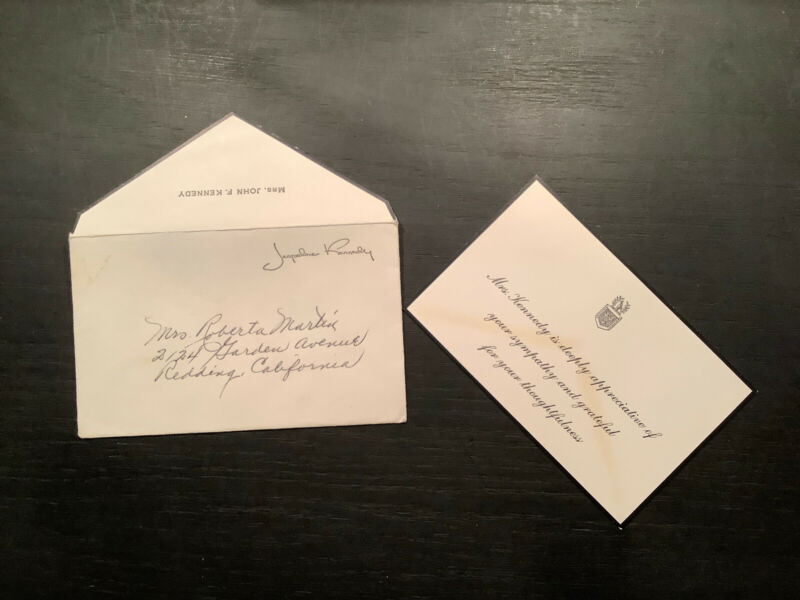 Mrs. JOHN F. KENNEDY
Jacqueline Kennedy
Mrs Roberta Martin
2124 Garden Avenue
Redding, California
Mrs. Kennedy is deeply appreciative of
your sympathy and grateful
for your thoughtfulness